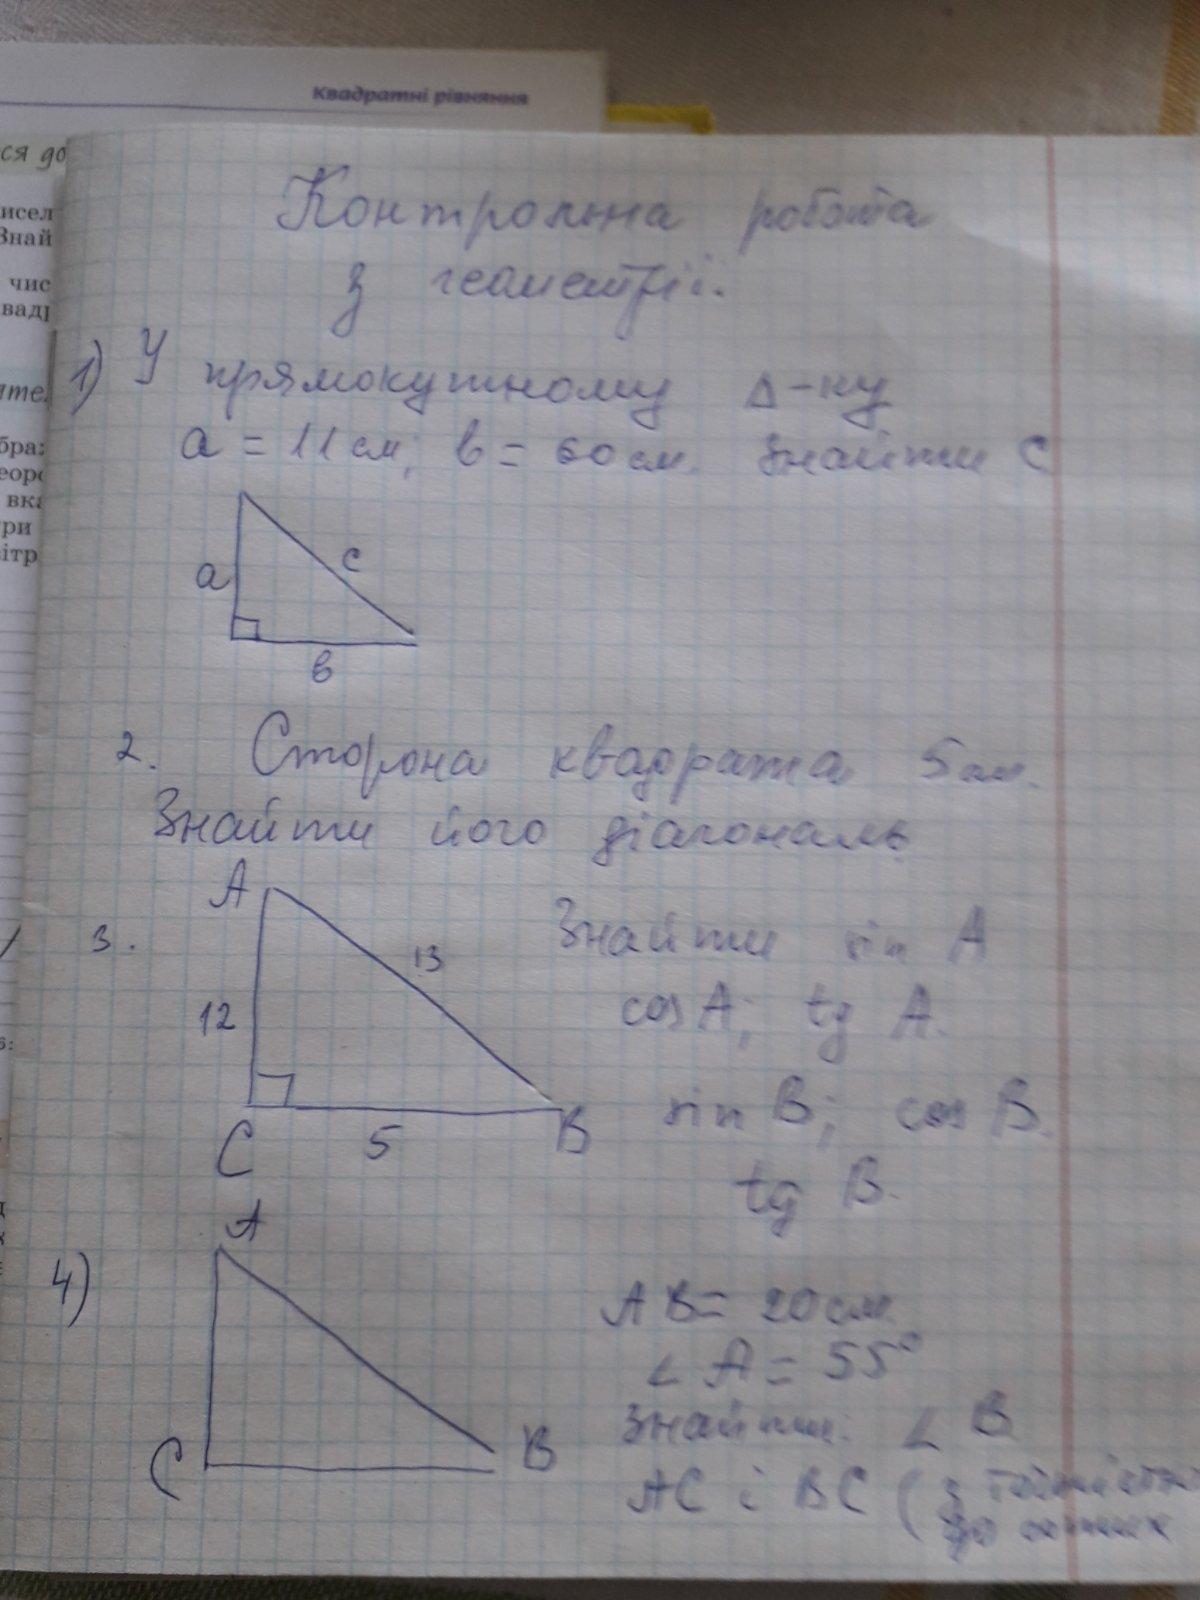 Квадратні рівняння
ся до
исел
Знай
чис
вадр
яте
бра
еоре
вка
ри
ітр
Контрольна робота
з геометрії.
1) У прямокутному Δ-ну
a = 11 см; в = 60 см. Знайти с
a
c
в
2. Сторона квадрата 5 см.
Знайти його діагональ
3.
A
13
12
C
5
B
Знайти sin A
cos A; tg A.
sin B; cos B.
tg B.
4)
A
C
B
AB = 20 см.
∠ A = 55°
Знайти: ∠ B
AC і BC (з
до